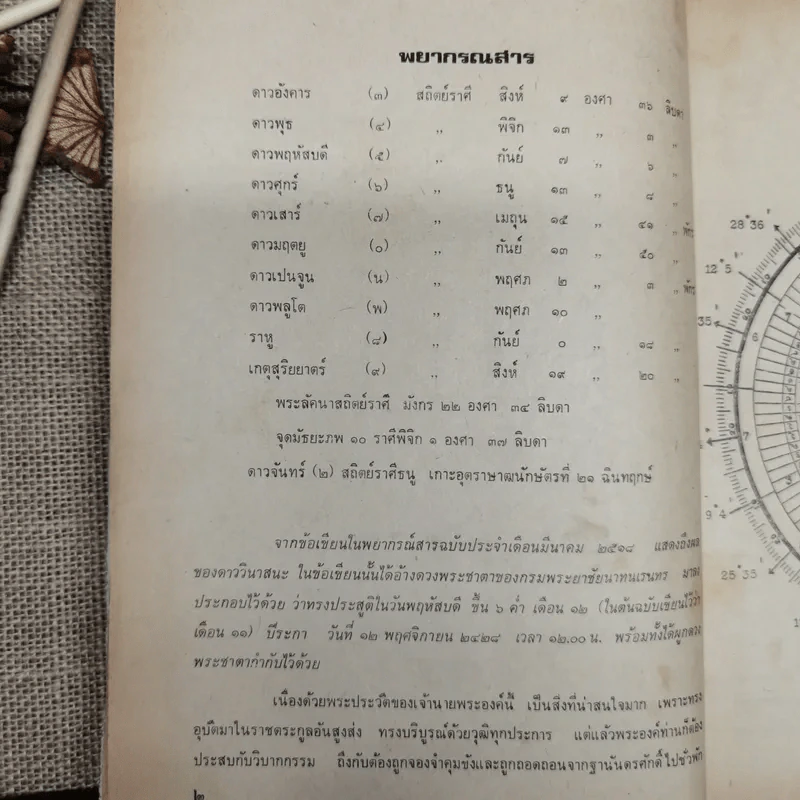 พยากรณสาร
ดาวอังคาร (๓) สถิตย์ราศี สิงห์ ๙ องศา ๓๖ ลิบดา
ดาวพุธ (๔) ,, พิจิก ๑๓ ,, ๓ ,,
ดาวพฤหัสบดี (๕) ,, กันย์ ๗ ,, ๖ ,,
ดาวศุกร์ (๖) ,, ธนู ๑๓ ,, ๘ ,,
ดาวเสาร์ (๗) ,, เมถุน ๑๕ ,, ๔๑ ,, พักร
ดาวมฤตยู (๐) ,, กันย์ ๑๓ ,, ๕๐ ,,
ดาวเปนจูน (น) ,, พฤศภ ๒ ,, ๓ ,, พักร
ดาวพลูโต (พ) ,, พฤศภ ๑๐ ,,
ราหู (๘) ,, กันย์ ๐ ,, ๑๘ ,,
เกตุสุริยยาตร์ (๙) ,, สิงห์ ๑๙ ,, ๒๐ ,,
พระลัคนาสถิตย์ราศี มังกร ๒๒ องศา ๓๔ ลิบดา
จุดมัธยะภพ ๑๐ ราศีพิจิก ๑ องศา ๓๗ ลิบดา
ดาวจันทร์ (๒) สถิตย์ราศีธนู เกาะอุตราษาฒนักษัตรที่ ๒๑ ฉินทฤกษ์
จากข้อเขียนในพยากรณ์สารฉบับประจำเดือนมีนาคม ๒๕๑๘ แสดงถึงผล
ของดาววินาสนะ ในข้อเขียนนั้นได้อ้างดวงพระชาตาของกรมพระยาชัยนาทนเรนทร มาลง
ประกอบไว้ด้วย ว่าทรงประสูติในวันพฤหัสบดี ขึ้น ๖ ค่ำ เดือน ๑๒ (ในต้นฉบับเขียนไว้ว่า
เดือน ๑๑) ปีระกา วันที่ ๑๒ พฤศจิกายน ๒๔๒๘ เวลา ๑๒.๐๐ น. พร้อมทั้งได้ผูกดวง
พระชาตากำกับไว้ด้วย
เนื่องด้วยพระประวัติของเจ้านายพระองค์นี้ เป็นสิ่งที่น่าสนใจมาก เพราะทรง
อุบัติมาในราชตระกูลอันสูงส่ง ทรงบริบูรณ์ด้วยวุฒิทุกประการ แต่แล้วพระองค์ท่านก็ต้อง
ประสบกับวิบากกรรม ถึงกับต้องถูกจองจำคุมขังและถูกถอดถอนจากฐานันดรศักดิ์ไปชั่วพัก
๒
28°36'
12°5'
35'
6
7
9'4
25°35'